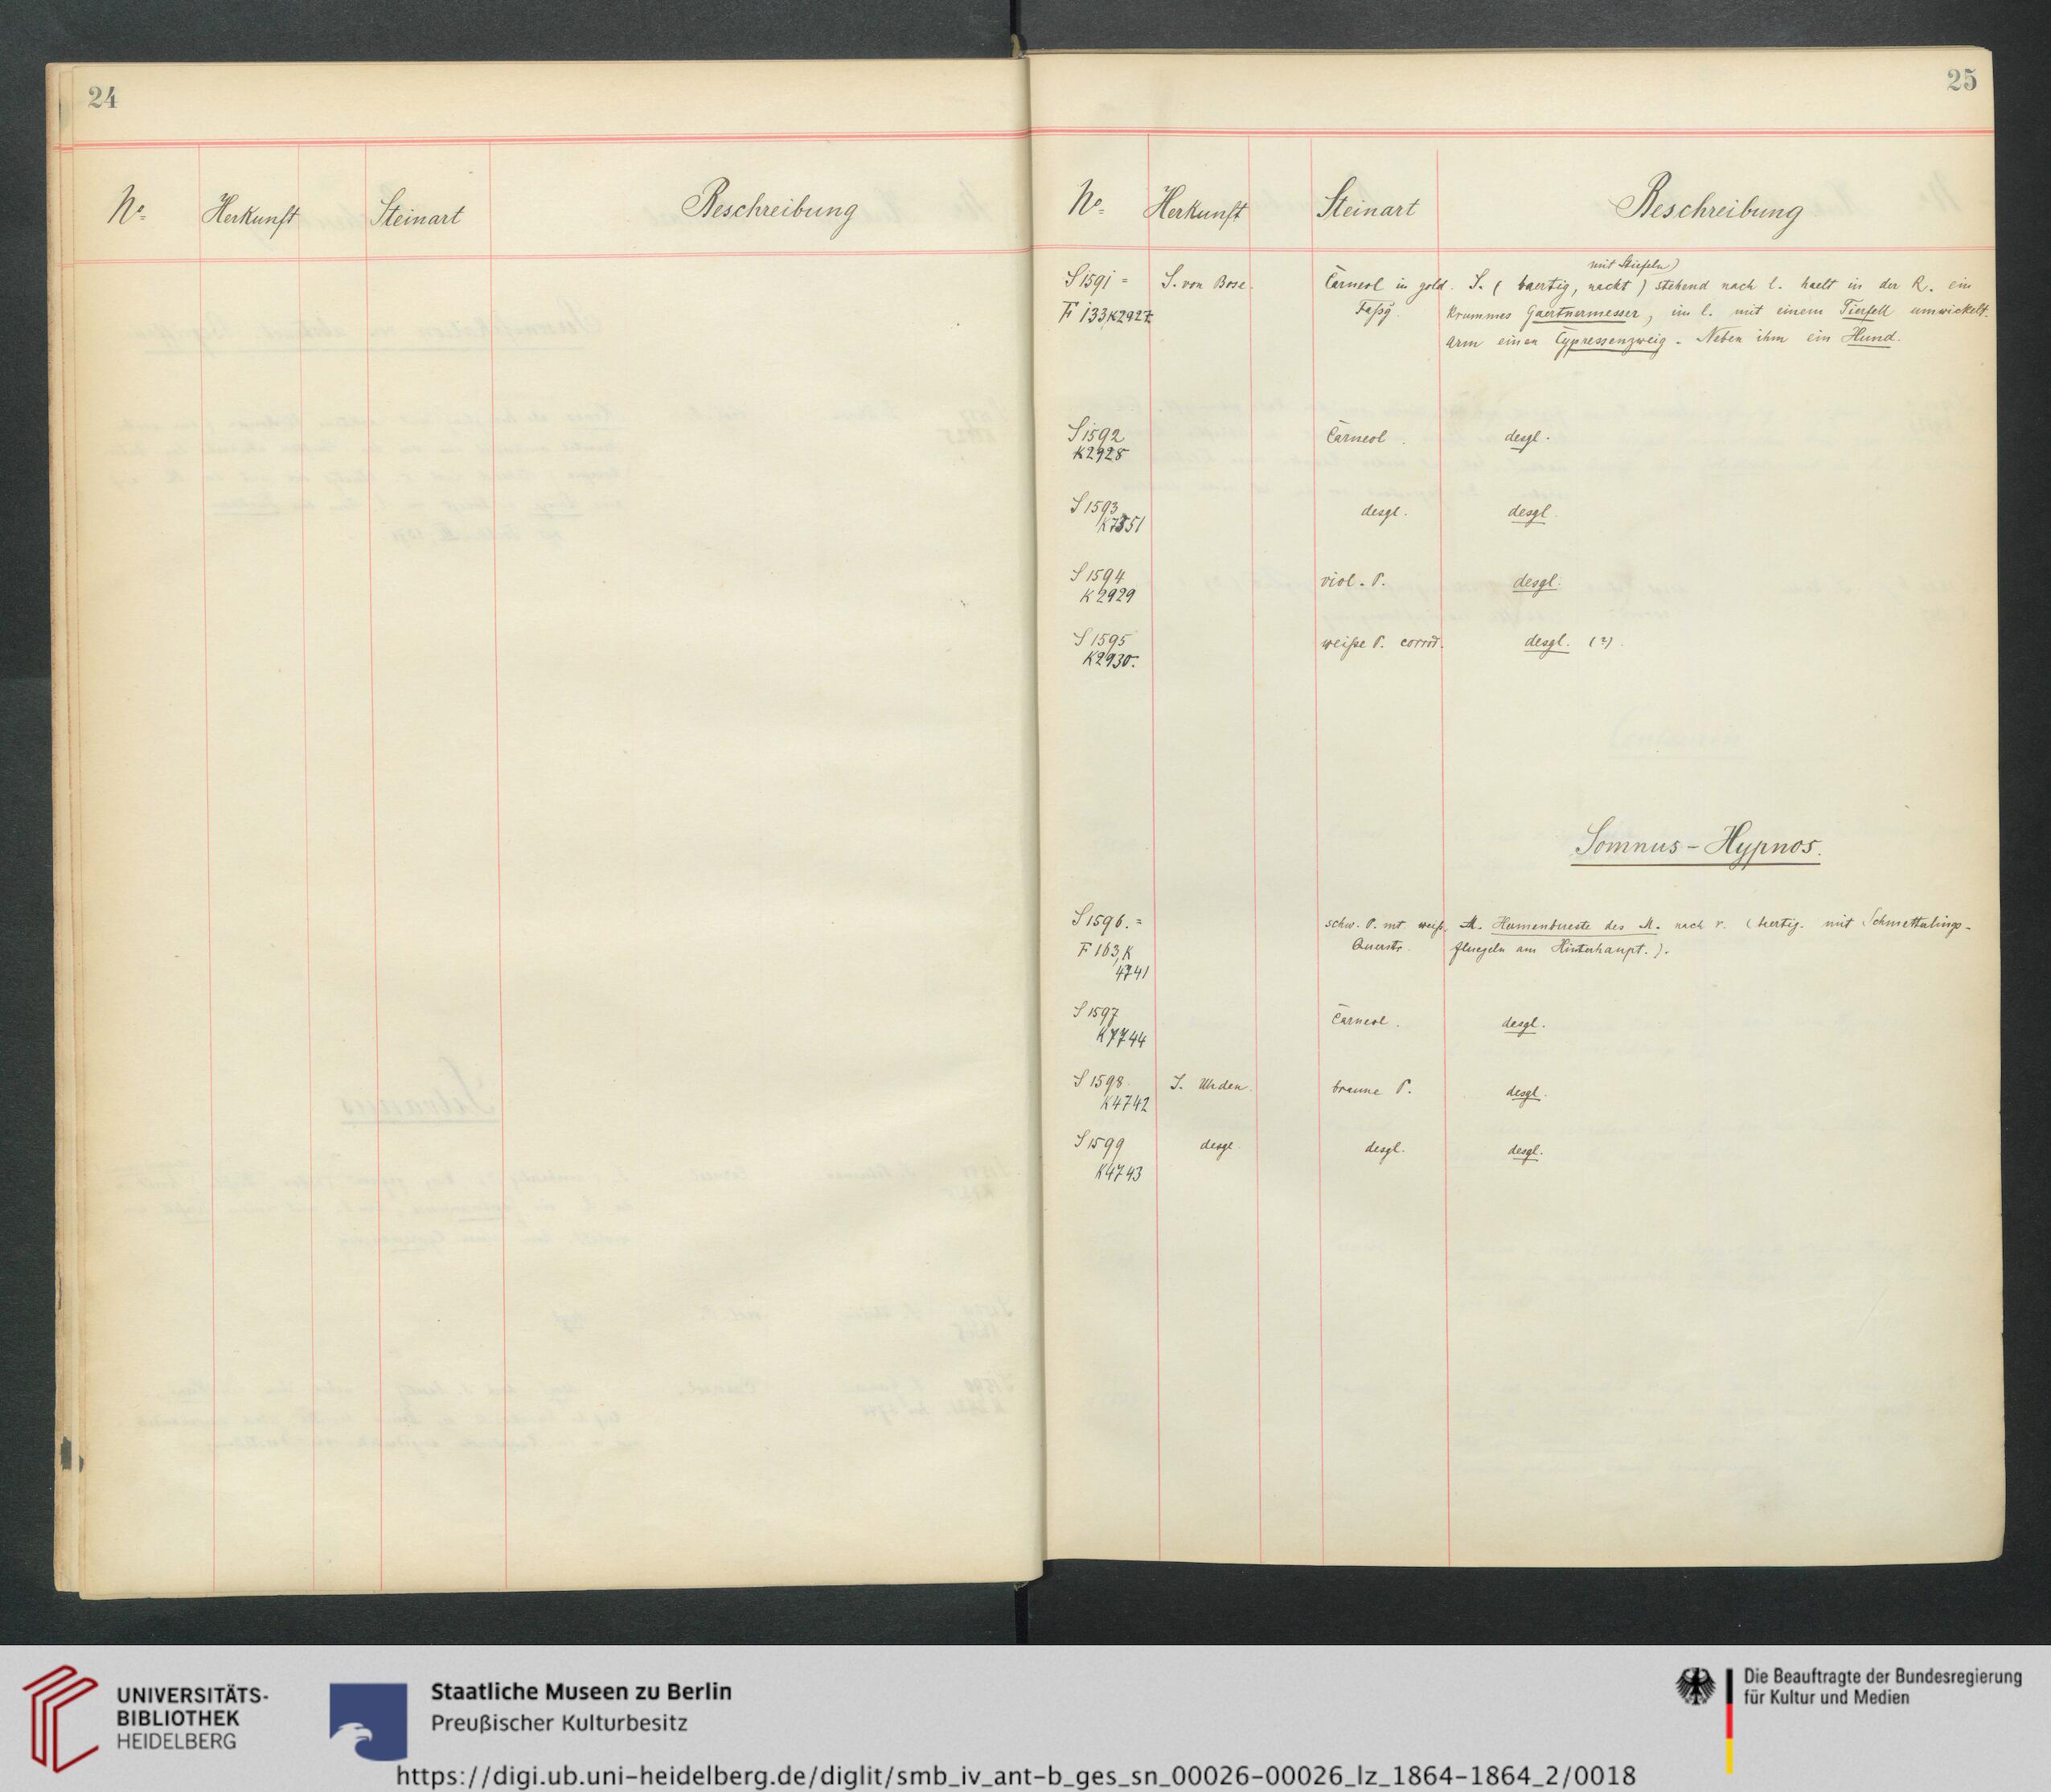 24
No. Herkunft Steinart Beschreibung
25
No. Herkunft Steinart Beschreibung
mit Stiefeln)
S 1591 = S. von Bose. Carneol in gold. S. ( baertig, nackt ) stehend nach l. haelt in der R. ein
F 133 K2927 Faßg. Krummes Gaertnermesser, im l. mit einem Tierfell umwickelt.
Arm einen Cypressenzweig. Neben ihm ein Hund.
S 1592 Carneol. desgl.
K2928
S 1593 desgl. desgl.
S 1594 viol. P. desgl.
K 2929
S 1595 weiße P. corrod. desgl. (?).
K2930.
Somnus - Hypnos.
S 1596. = schw. P. mt weiß. Hermenbueste des nach r. (baertig. mit Schmetterlings-
F 163, K Querstr. fluegeln am Hinterhaupt.).
4741
S 1597 Carneol. desgl.
K7744
S 1598. S. Uhden. braune P. desgl.
K4742
S 1599 desgl. desgl. desgl.
K4743
UNIVERSITÄTS-
BIBLIOTHEK
HEIDELBERG
Staatliche Museen zu Berlin
Preußischer Kulturbesitz
Die Beauftragte der Bundesregierung
für Kultur und Medien
https://digi.ub.uni-heidelberg.de/diglit/smb_iv_ant-b_ges_sn_00026-00026_lz_1864-1864_2/0018